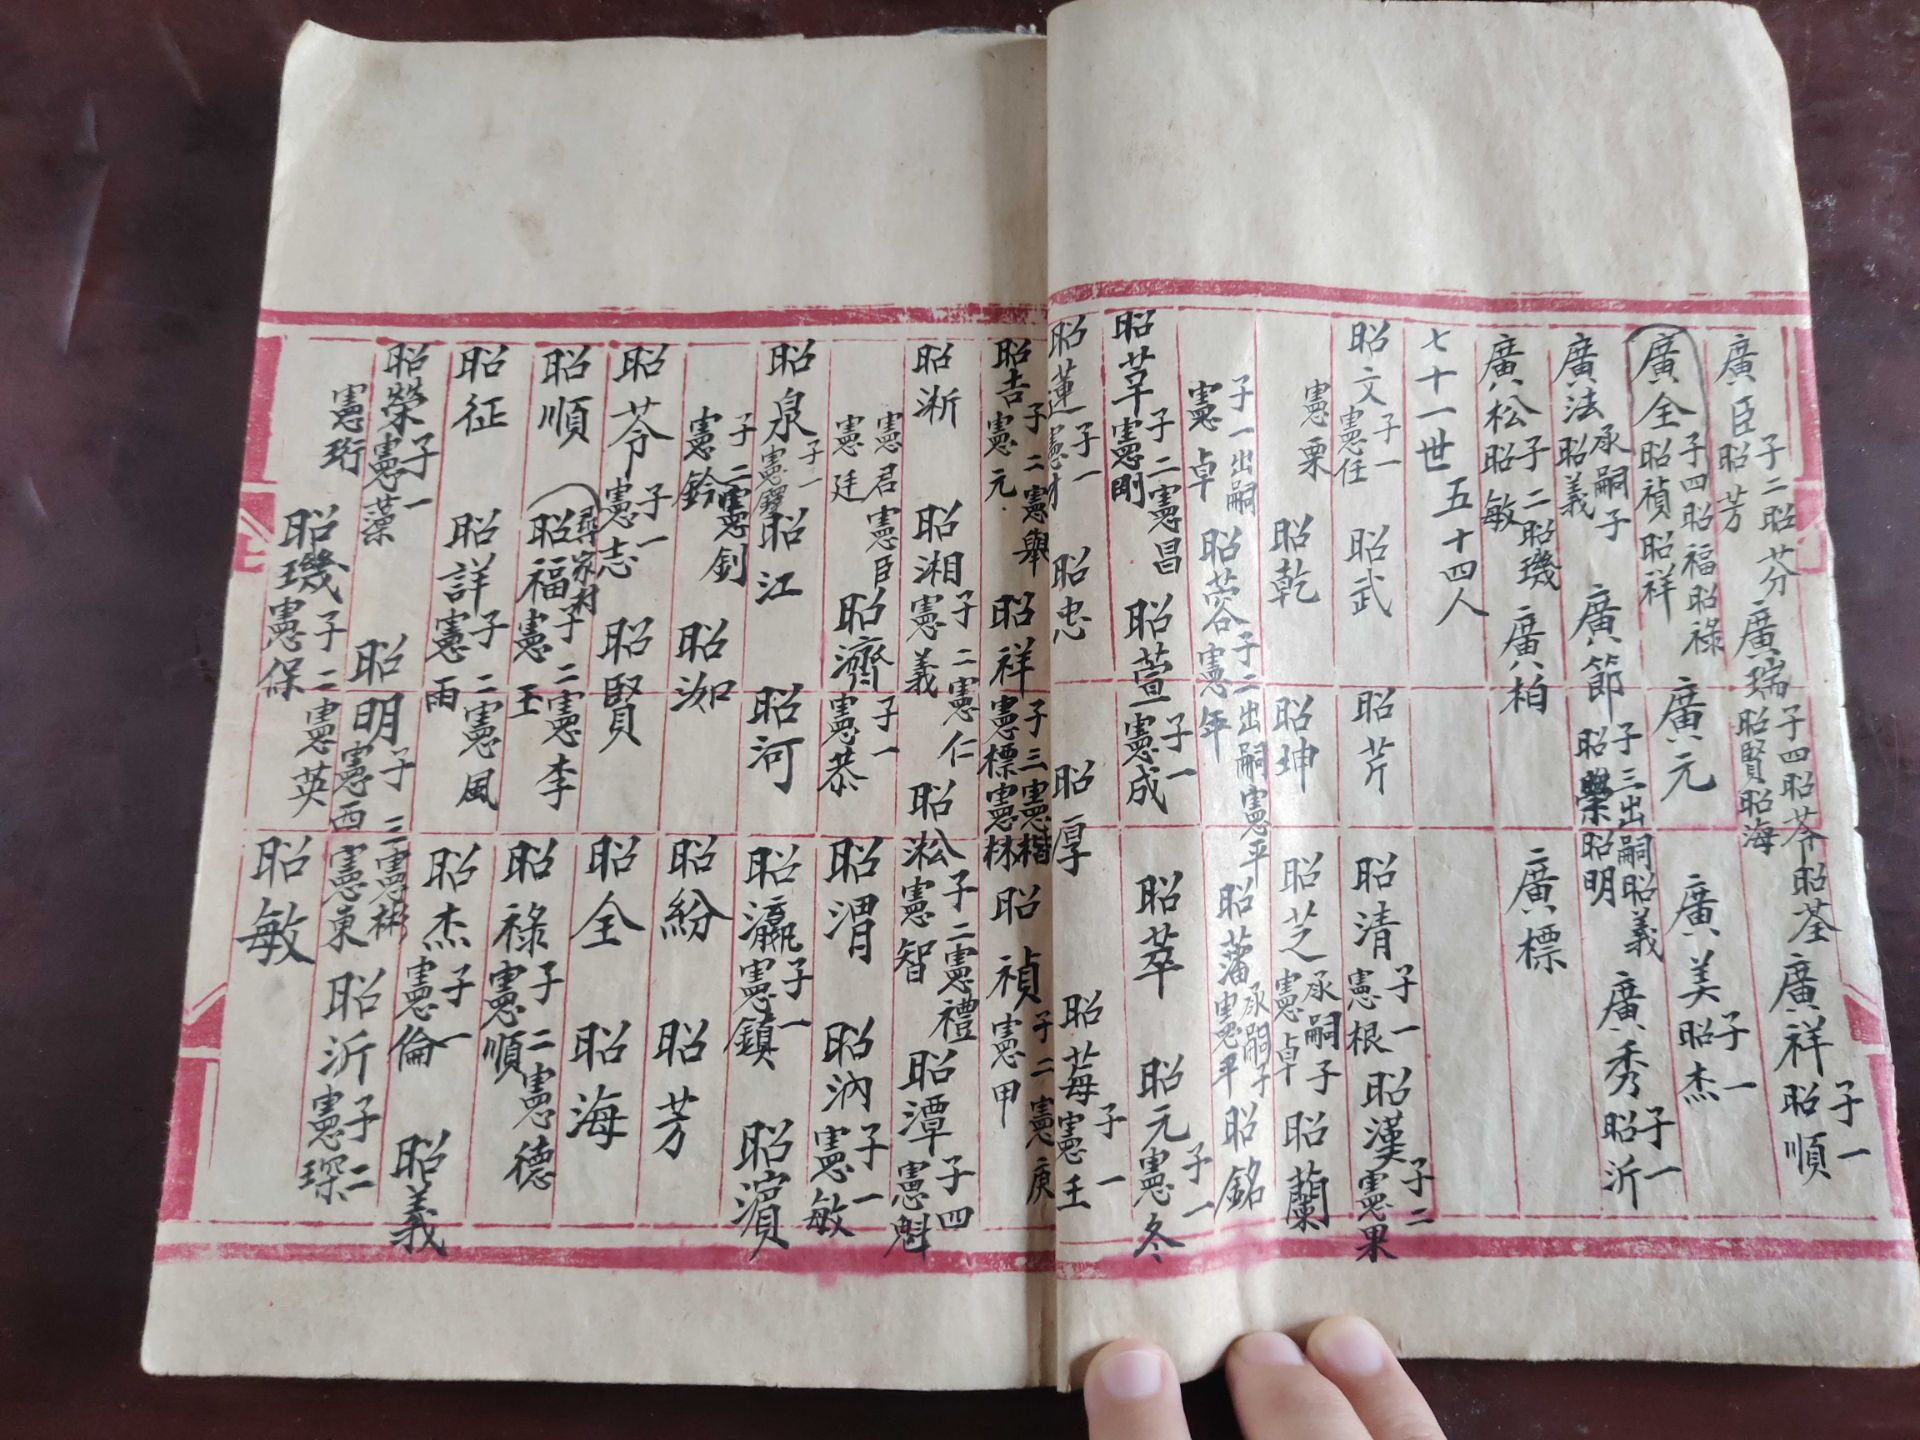 廣臣子二昭芬昭芳 廣瑞子四昭苓昭荃昭賢昭海 廣祥子一昭順
廣全子四昭福昭祿昭禎昭祥 廣元 廣美子一昭杰
廣法承嗣子昭義 廣節子三出嗣昭義昭榮昭明 廣秀子一昭沂
廣松子二昭璣昭敏 廣柏 廣標
七十一世 五十四人
昭文子一憲任 昭武 昭芹 昭清子一憲根 昭漢子二憲果
憲栗 昭乾 昭坤 昭芝承嗣子憲卓 昭蘭
子一出嗣憲卓 昭蓉子二出嗣憲平憲年 昭藩承嗣子憲平 昭銘
昭草子二憲昌憲剛 昭萱子一憲成 昭萃 昭元子一憲冬
昭蓮子一憲才 昭忠 昭厚 昭莓子一憲王
昭吉子二憲舉憲元 昭祥子三憲楷憲標憲林 昭禎子二憲庚憲甲
昭淅 昭湘子二憲仁憲義 昭淞子二憲禮憲智 昭潭子四憲魁
憲君憲臣憲廷 昭濟子一憲恭 昭渭 昭汭子一憲敏
昭泉子一憲鐸 昭江 昭河 昭瀛子一憲鎮 昭濱
子二憲釗憲鈴 昭洳 昭紛 昭芳
昭苓子一憲志 昭賢 昭全 昭海
昭順 尋家村 昭福子二憲李憲玉 昭祿子二憲德憲順
昭征 昭詳子二憲風憲雨 昭杰子一憲倫 昭義
昭榮子一憲藻 昭明子三憲彬憲西憲東 昭沂子二憲琛
憲珩 昭璣子二憲英憲保 昭敏